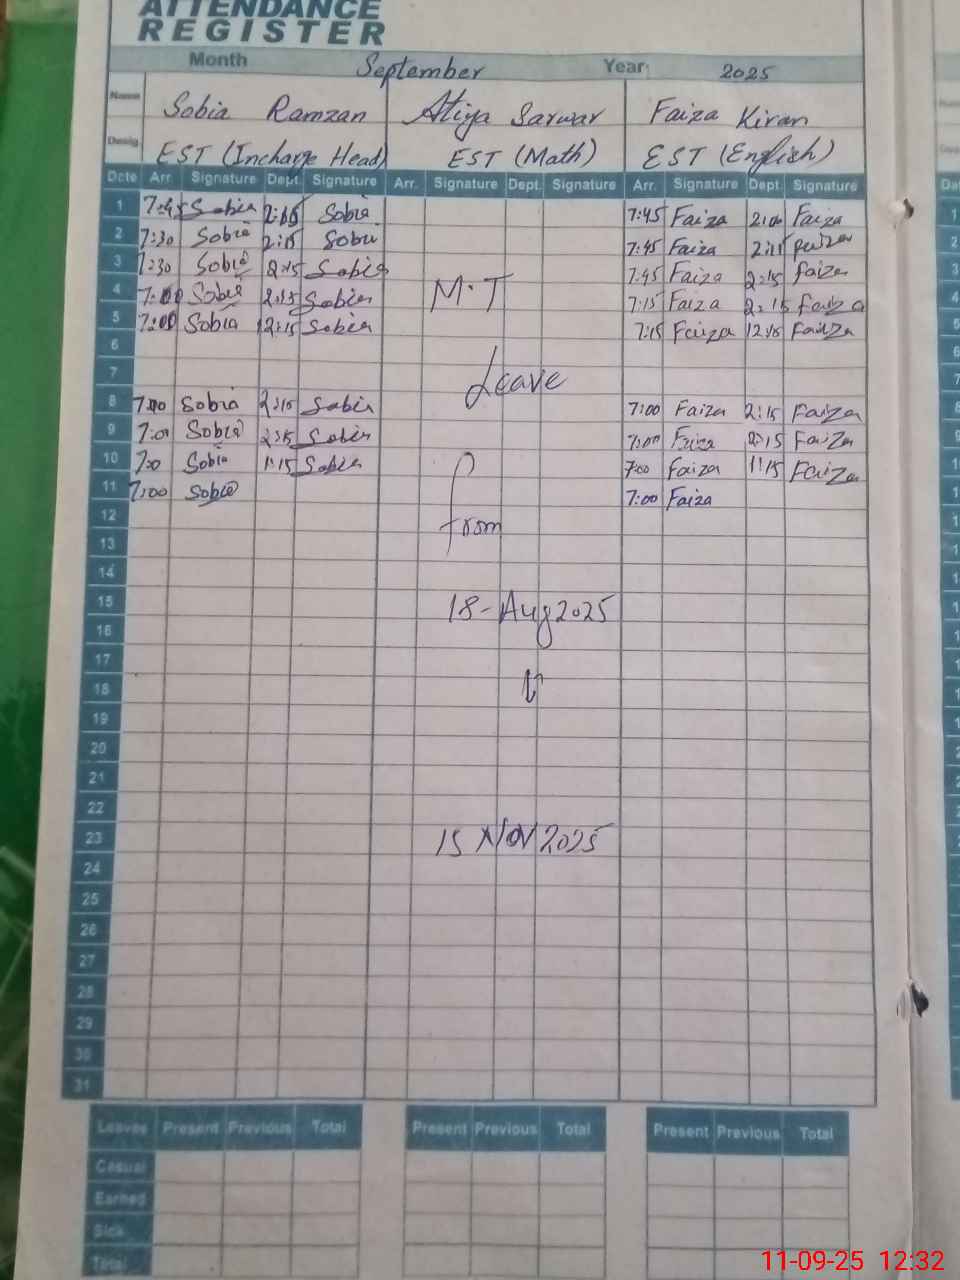 ATTENDANCE
REGISTER
Month September Year 2025
Name Sobia Ramzan Atiya Sarwar Faiza Kiran
Desig. EST (Incharge Head) EST (Math) EST (English)
Date Arr. Signature Dept. Signature Arr. Signature Dept. Signature Arr. Signature Dept. Signature
1 7:45 Sobia Sobia 7:45 Faiza 2:00 Faiza
2 7:30 Sobia 2:15 Sobia 7:45 Faiza 2:15 Faiza
3 7:30 Sobia 2:15 Sobia 7:45 Faiza 2:15 Faiza
4 7:00 Sobia 2:15 Sobia M.T 7:15 Faiza 2:15 Faiza
5 7:00 Sobia 12:15 Sobia 7:15 Faiza 12:15 Faiza
6
7 Leave
8 7:00 Sobia 2:15 Sobia 7:00 Faiza 2:15 Faiza
9 7:00 Sobia 2:15 Sobia 7:00 Faiza 2:15 Faiza
10 7:00 Sobia 1:15 Sobia 7:00 Faiza 1:15 Faiza
11 7:00 Sobia 7:00 Faiza
12 from
13
14
15 18-Aug 2025
16
17
18
19
20
21
22
23 15 NOV 2025
24
25
26
27
28
29
30
31
Leaves Present Previous Total Present Previous Total Present Previous Total
Casual
Earned
Sick
Total
11-09-25 12:32